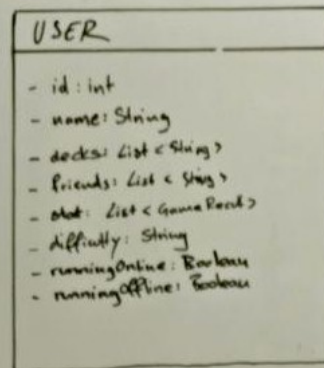 USER
- id : int
- name : String
- decks : List < String >
- friends : List < String >
- stat : List < Game Result >
- difficulty : String
- runningOnline : Boolean
- runningOffline : Boolean